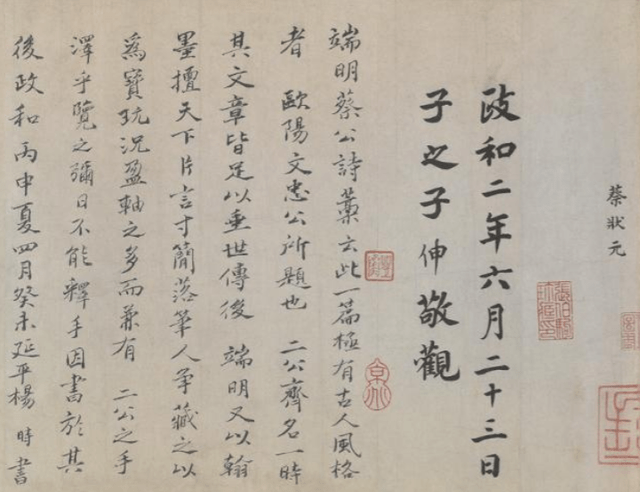 蔡狀元
政和二年六月二十三日
子之子伸敬觀
端明蔡公詩藁云此一篇極有古人風格
者 歐陽文忠公所題也 二公齊名一時
其文章皆足以垂世傳後 端明又以翰
墨擅天下片言寸簡落筆人爭藏之以
為寶玩況盈軸之多而兼有 二公之手
澤乎覽之彌日不能釋手因書於其
後政和丙申夏四月癸未延平楊 時書